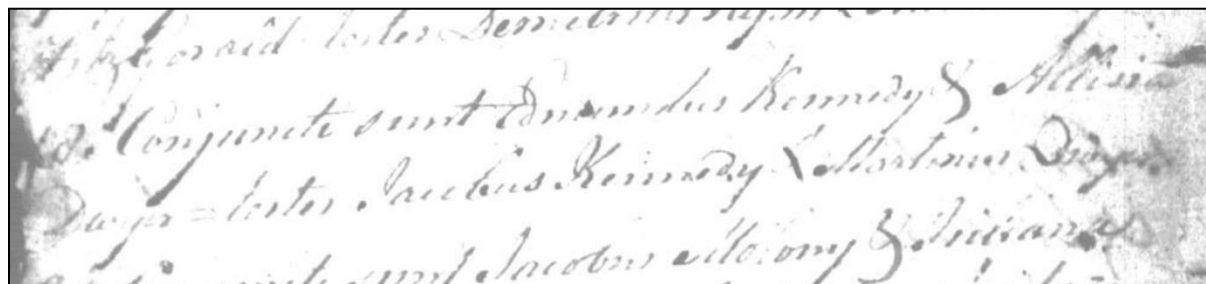 FitzGerald testes Demetrius
18. Conjuncti sunt Edmundus Kennedy & Allisia
Dwyer = testes Jacobus Kennedy & Martinus Dwyer
sunt Jacobus Molony & Juliana